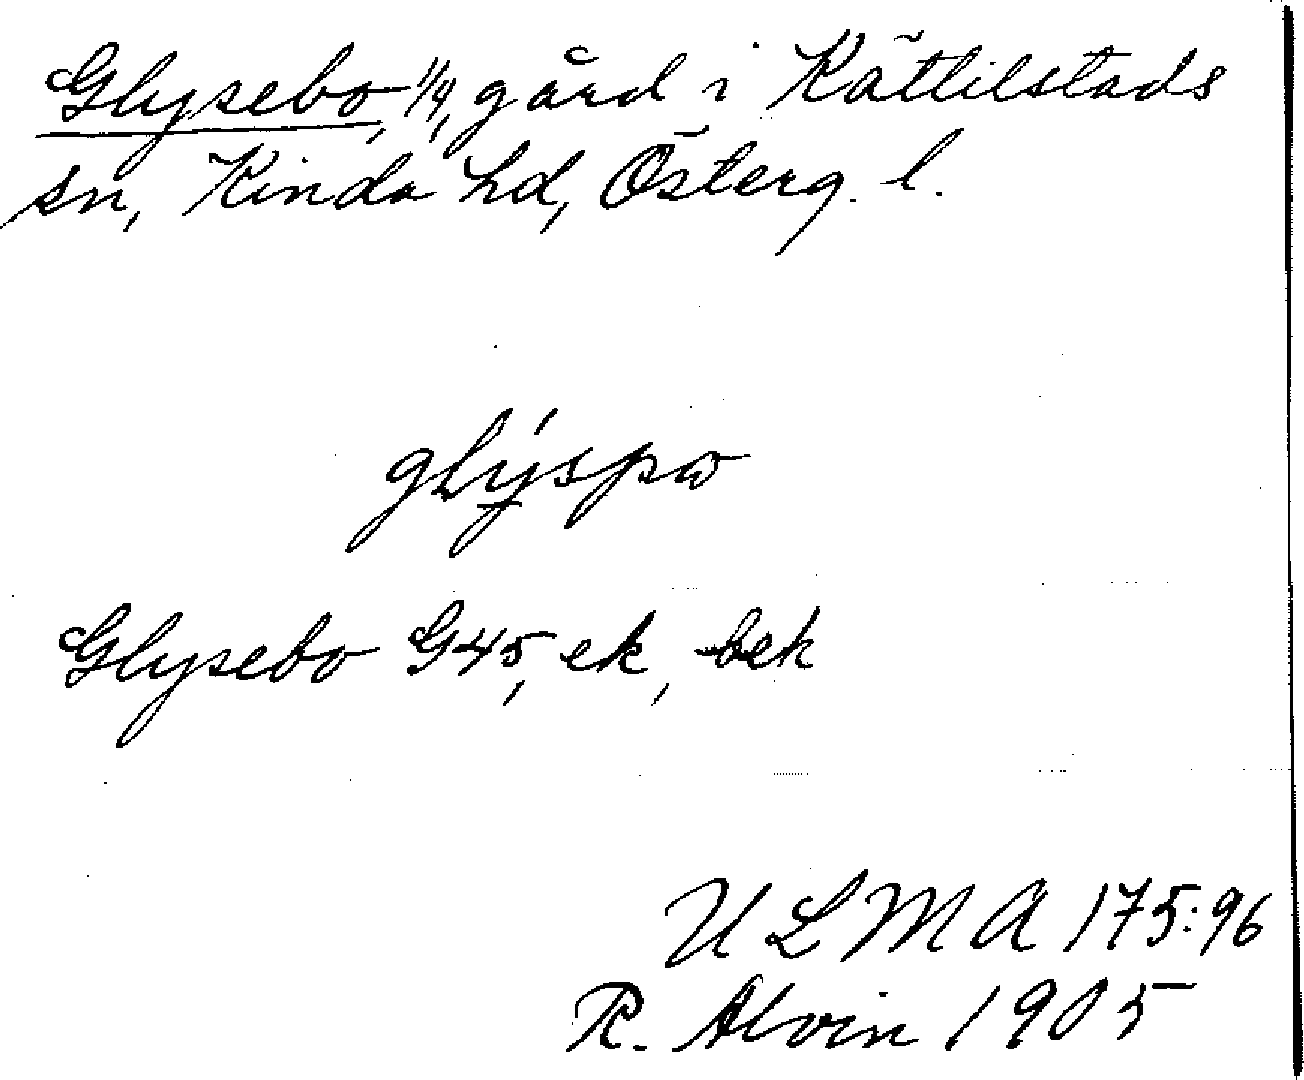 Glysebo, 1/4, gård i Kättilstads
sn, Kinda hd, Österg. l.
glýspω
Glysebo G45, ek, bek
ULMA 175:96
R. Alvin 1905